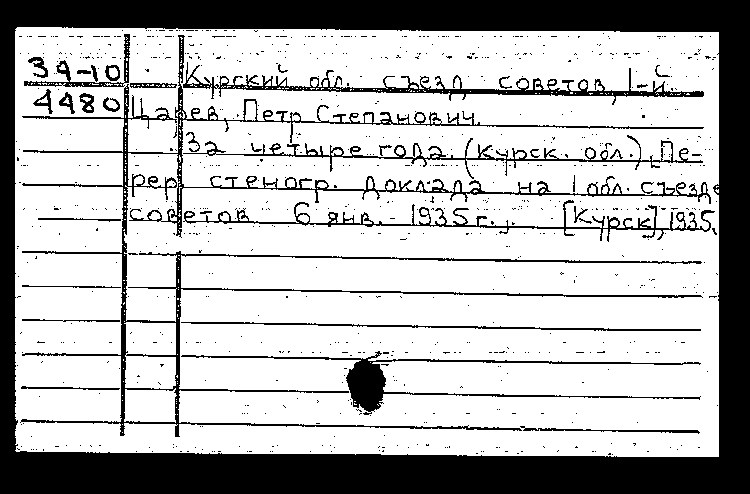 34-10 Курский обл. съезд советов, 1-й.
4480 Царев, Петр Степанович.
За четыре года. (Курск. обл.) [Пе-
рер. стеногр. доклада на 1 обл. съезде
советов 6 янв. 1935 г.]. [Курск], 1935.